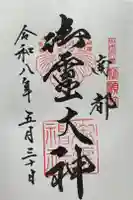 京都
御靈大神
令和八年五月三十日